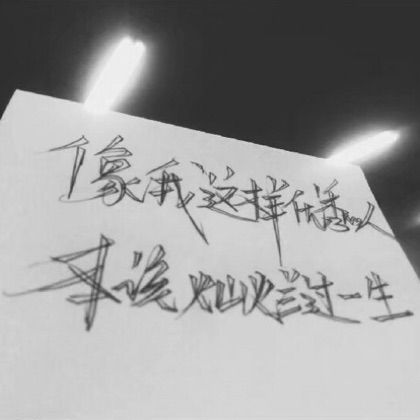 像我这样优秀的人
本该灿烂过一生